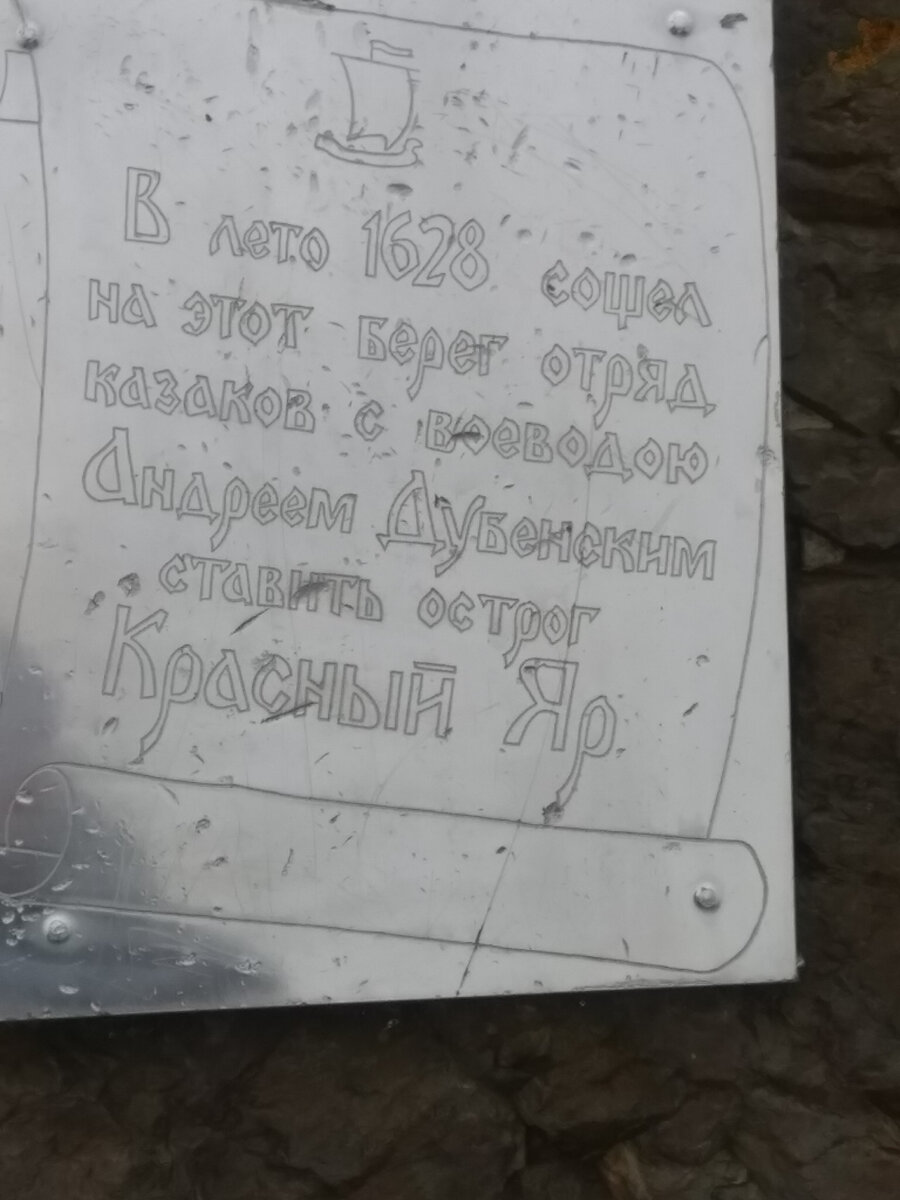 В лето 1628 сошел
на этот берег отряд
казаков с воеводою
Андреем Дубенским
ставить острог
Красный Яр